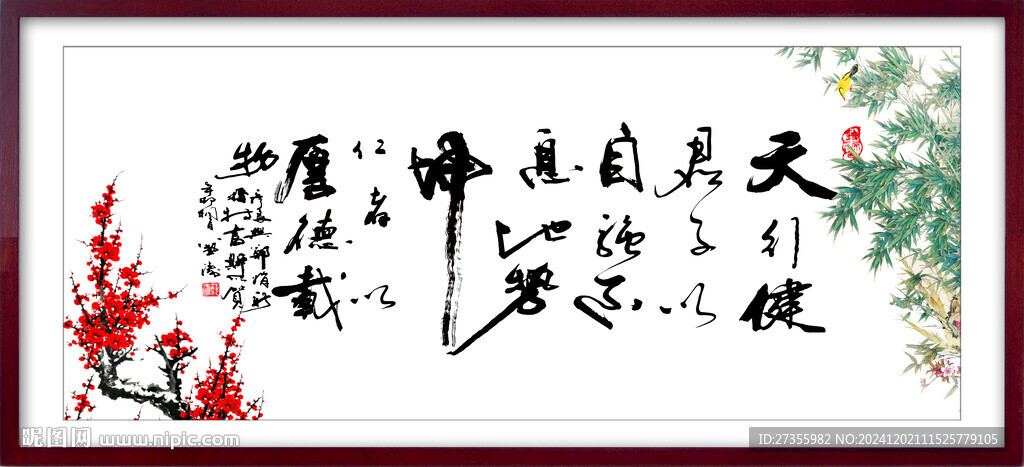 天行健
君子以
自强不
息地势
坤
仁者以
厚德载
物
昵图网 www.nipic.com
ID:27355982 NO:20241202111525779105